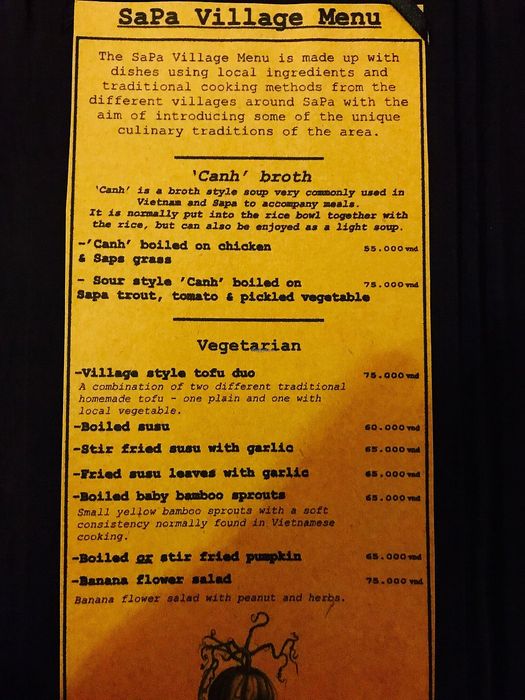 SaPa Village Menu
The SaPa Village Menu is made up with
dishes using local ingredients and
traditional cooking methods from the
different villages around SaPa with the
aim of introducing some of the unique
culinary traditions of the area.
'Canh' broth
'Canh' is a broth style soup very commonly used in
Vietnam and Sapa to accompany meals.
It is normally put into the rice bowl together with
the rice, but can also be enjoyed as a light soup.
-'Canh' boiled on chicken 55.000 vnd
& Sapa grass
- Sour style 'Canh' boiled on 75.000 vnd
Sapa trout, tomato & pickled vegetable
Vegetarian
-Village style tofu duo 75.000 vnd
A combination of two different traditional
homemade tofu - one plain and one with
local vegetable.
-Boiled susu 60.000 vnd
-Stir fried susu with garlic 65.000 vnd
-Fried susu leaves with garlic 65.000 vnd
-Boiled baby bamboo sprouts 65.000 vnd
Small yellow bamboo sprouts with a soft
consistency normally found in Vietnamese
cooking.
-Boiled or stir fried pumpkin 65.000 vnd
-Banana flower salad 75.000 vnd
Banana flower salad with peanut and herbs.